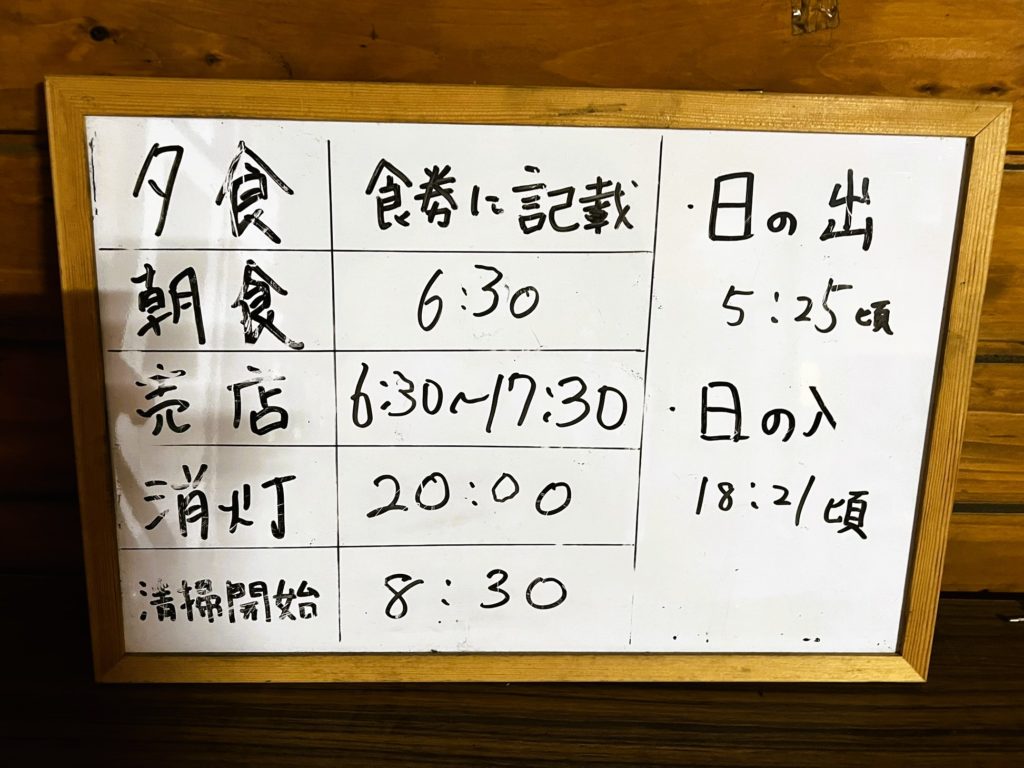 夕食 食券に記載
朝食 6:30
売店 6:30~17:30
消灯 20:00
清掃開始 8:30
・日の出
5:25頃
・日の入
18:21頃